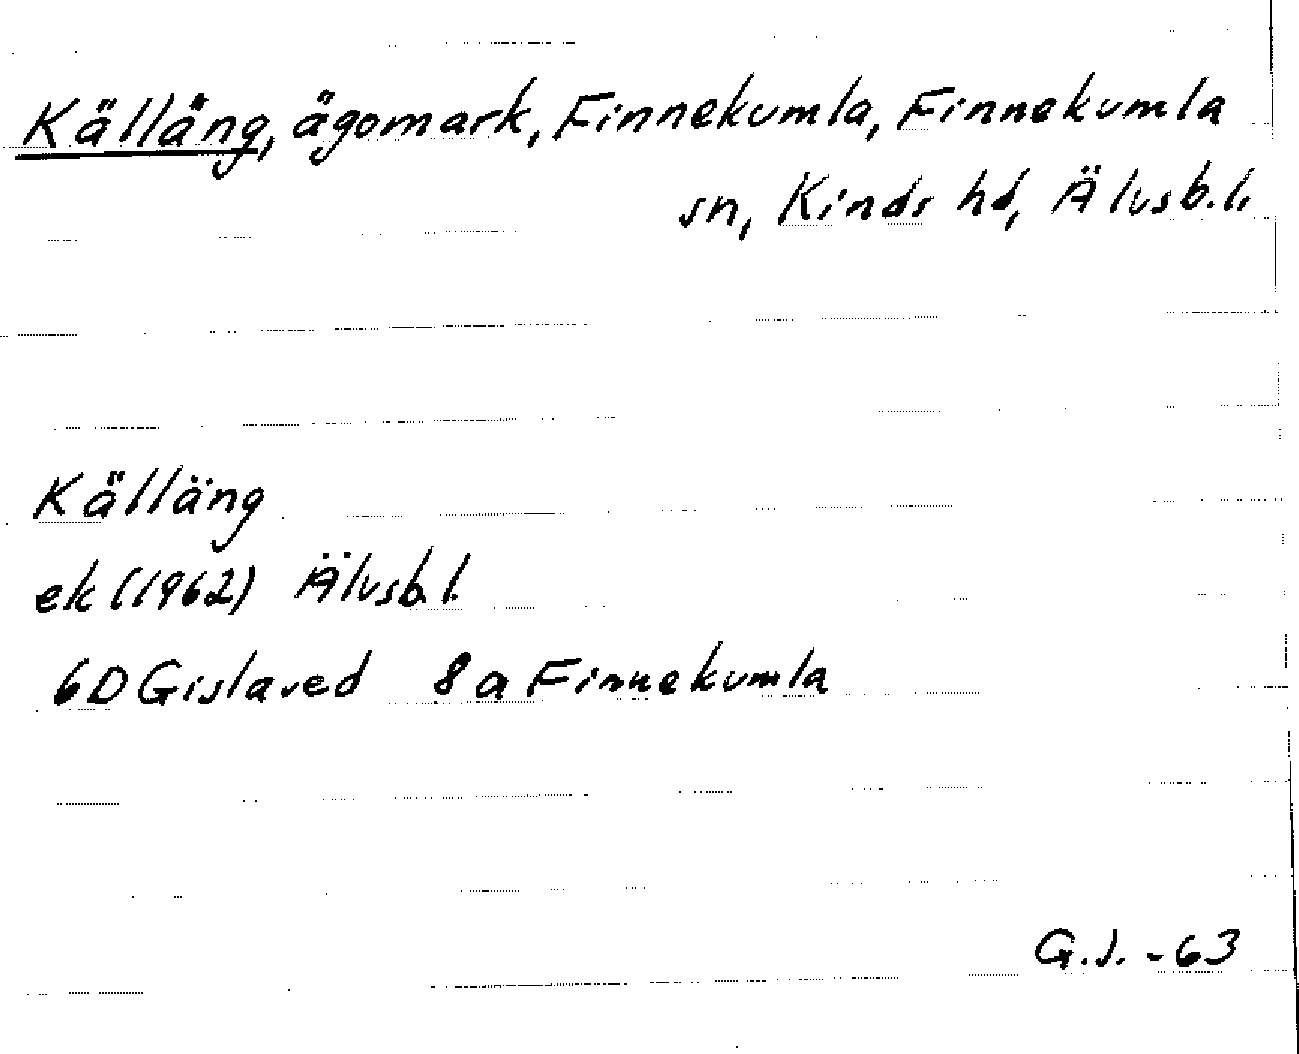 Källäng, ägomark, Finnekumla, Finnekumla
sn, Kinds hd, Älvsb.l.
Källäng
ek (1962) Älvsb.l.
6D Gislaved 8a Finnekumla
G.J. -63